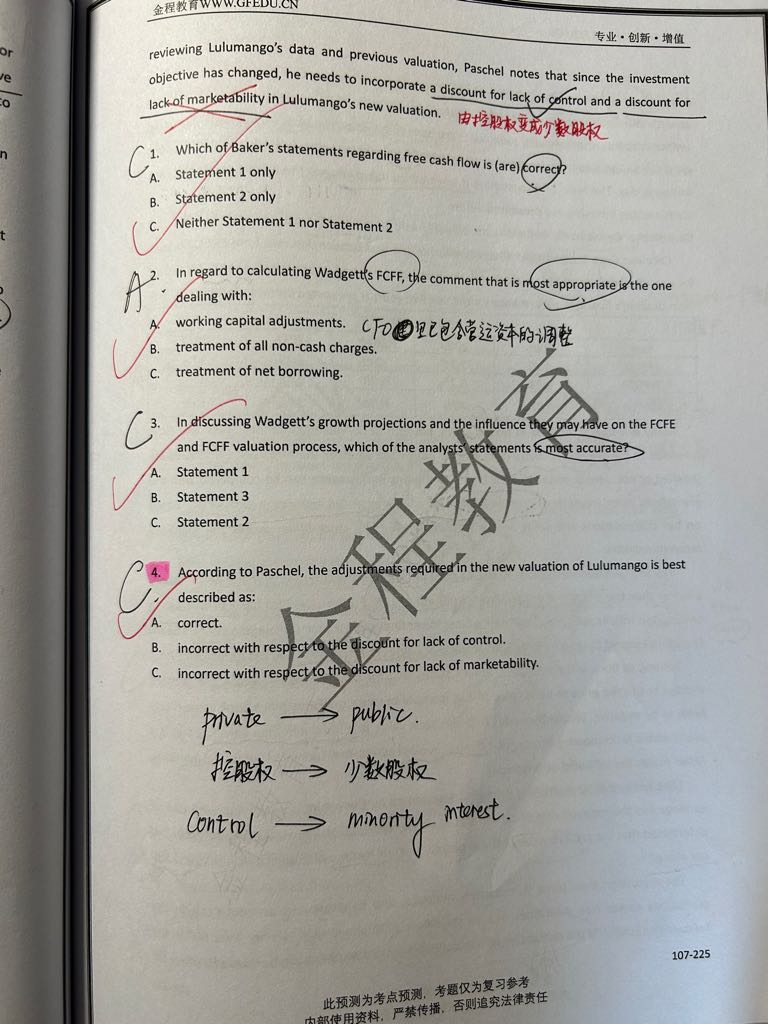 金程教育WWW.GFEDU.CN
专业·创新·增值
reviewing Lulumango's data and previous valuation, Paschel notes that since the investment
objective has changed, he needs to incorporate a discount for lack of control and a discount for
lack of marketability in Lulumango's new valuation.
由控股权变成少数股权
C 1. Which of Baker's statements regarding free cash flow is (are) correct?
A. Statement 1 only
B. Statement 2 only
C. Neither Statement 1 nor Statement 2
A 2. In regard to calculating Wadgett's FCFF, the comment that is most appropriate is the one
dealing with:
A. working capital adjustments. CFO 里已包含营运资本的调整
B. treatment of all non-cash charges.
C. treatment of net borrowing.
C 3. In discussing Wadgett's growth projections and the influence they may have on the FCFE
and FCFF valuation process, which of the analysts' statements is most accurate?
A. Statement 1
B. Statement 3
C. Statement 2
C 4. According to Paschel, the adjustments required in the new valuation of Lulumango is best
described as:
A. correct.
B. incorrect with respect to the discount for lack of control.
C. incorrect with respect to the discount for lack of marketability.
金程教育
private → public.
控股权 → 少数股权
control → minority interest.
107-225
此预测为考点预测，考题仅为复习参考
内部使用资料，严禁传播，否则追究法律责任
or
ve
to
n
t